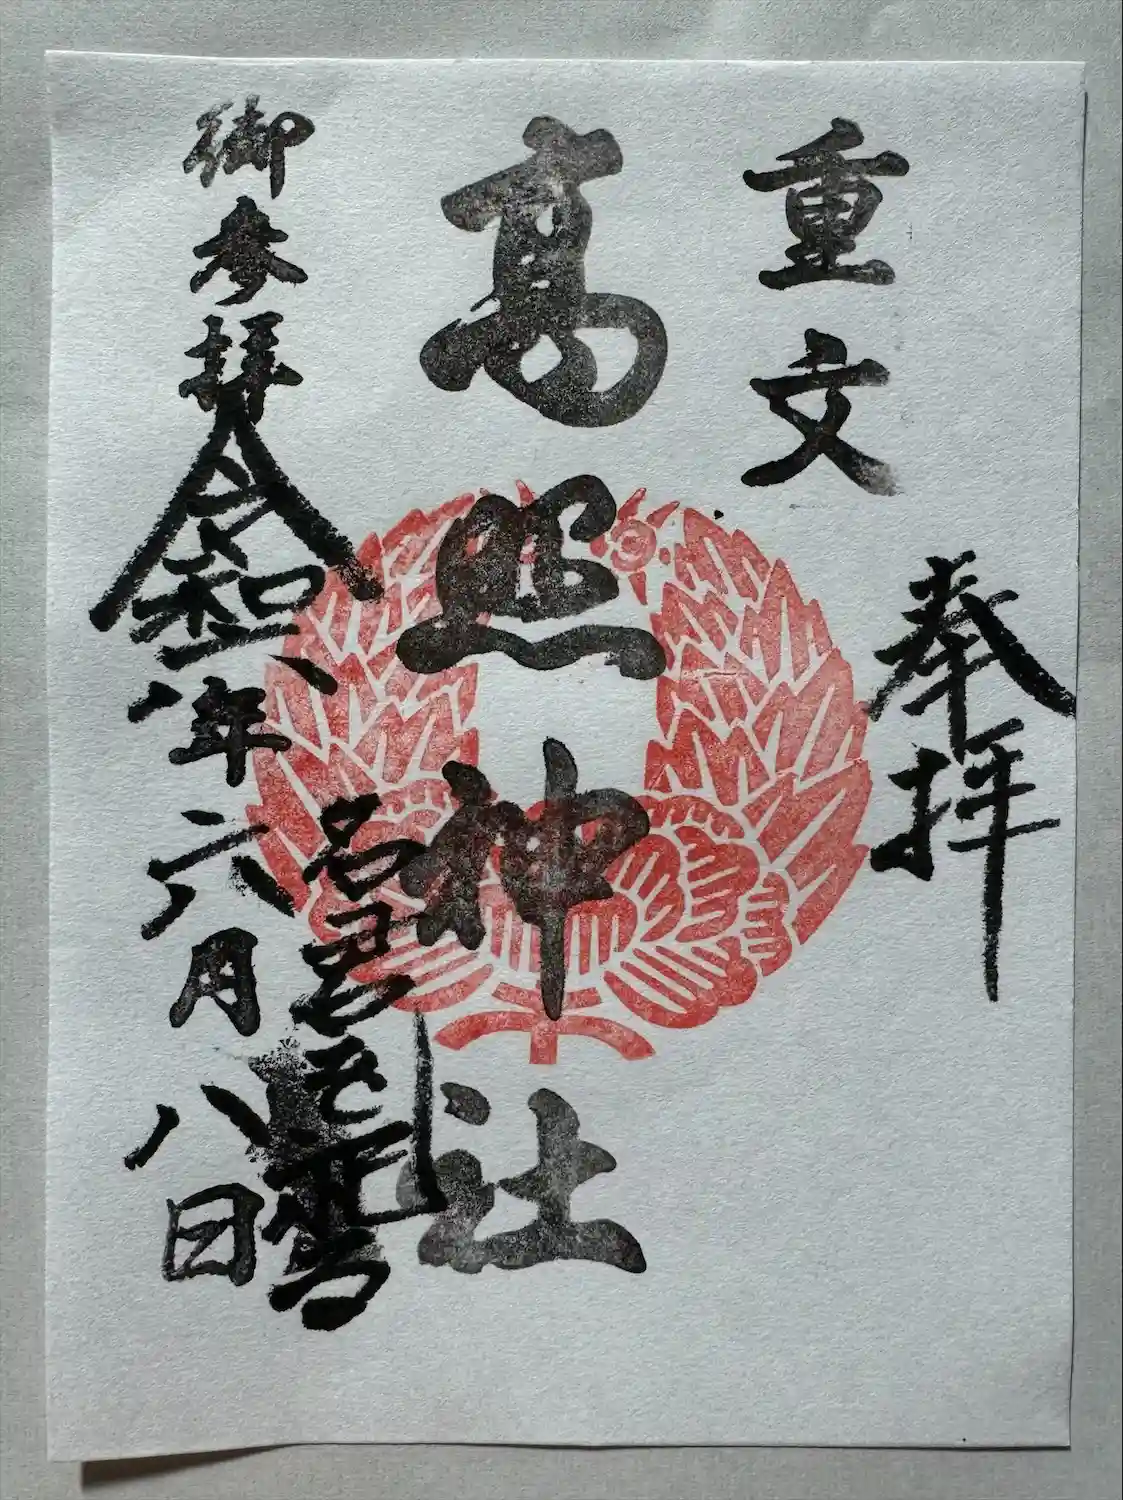 重文
奉拝
高照神社
御参拝
令和八年六月八日